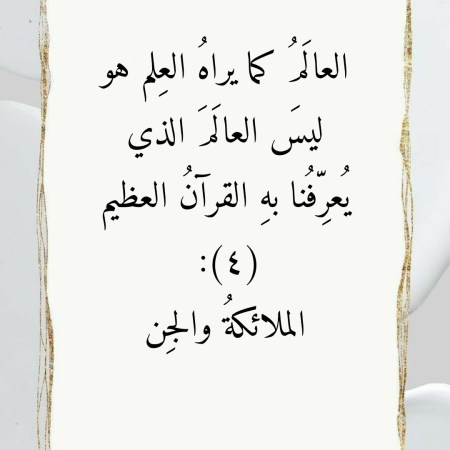 العالَمُ كما يراهُ العِلم هو
ليسَ العالَمَ الذي
يُعرِّفُنا بهِ القرآنُ العظيم
(٤):
الملائكةُ والجِن